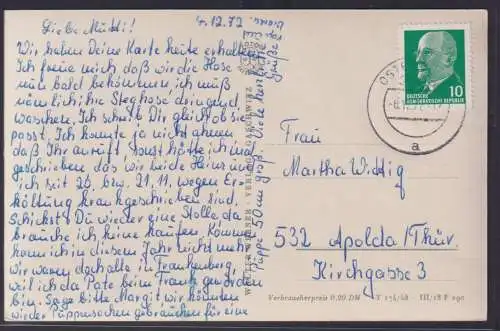 4.12.72
Liebe Mutti!
Wir haben Deine Karte heute erhalten.
Ich freue mich daß wir die Hose
nun bald bekommen, ich muß
nämlich ihre Steghose dringend
waschen. Ich schrieb Dir gleich ob sie
passt. Ich konnte ja nicht ahnen
daß Ihr anruft sonst hätte ich nie
geschrieben das wir beide Heinz und
ich seit 20. bzw. 21.11. wegen Er-
kältung krankgeschrieben sind.
Schickst Du wieder eine Stolle da
brauche ich keine kaufen. Kommen
kann ich in diesem Jahr nicht mehr
Wir waren deshalb in Frankenberg,
weil ich da Pate beim Frank geworden
bin. Sage bitte Margit wir können
wieder Puppensachen gebrauchen für eine
Puppe 50 cm groß. Viele herzliche
Grüße
Frau
Martha Wittig
532 Apolda/Thür.
Kirchgasse 3
DEUTSCHE
DEMOKRATISCHE REPUBLIK
10
a
Verbraucherpreis 0,20 DM
III/18 F 290